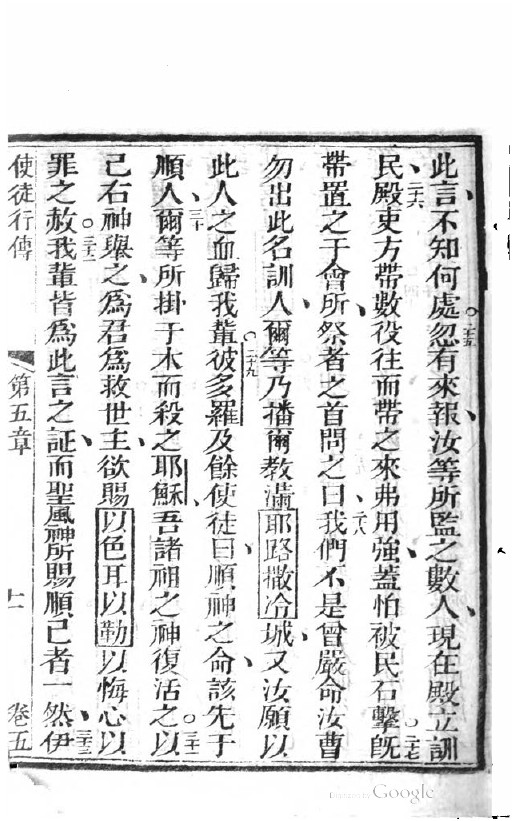 此言、不知何處。○二十五忽有來報、汝等所監之數人、現在殿立訓
民、二十六殿吏方帶數役、往而帶之來、弗用強、蓋怕被民石擊。○二十七旣
帶置之于會所、祭者之首問之曰、二十八我們不是曾嚴命汝曹
勿出此名訓人、爾等乃播爾教滿耶路撒冷城、又汝願以
此人之血歸我輩。○二十九彼多羅及餘使徒曰、順神之命、該先于
順人、三十爾等所掛于木而殺之耶穌、吾諸祖之神復活之。○三十一以
己右神舉之、爲君爲救世主、欲賜以色耳以勒以悔心、以
罪之赦。○三十二我輩皆爲此言之証、而聖風神所賜順己者一然、三十三伊
使徒行傳 第五章 十一 卷五
Digitized by Google